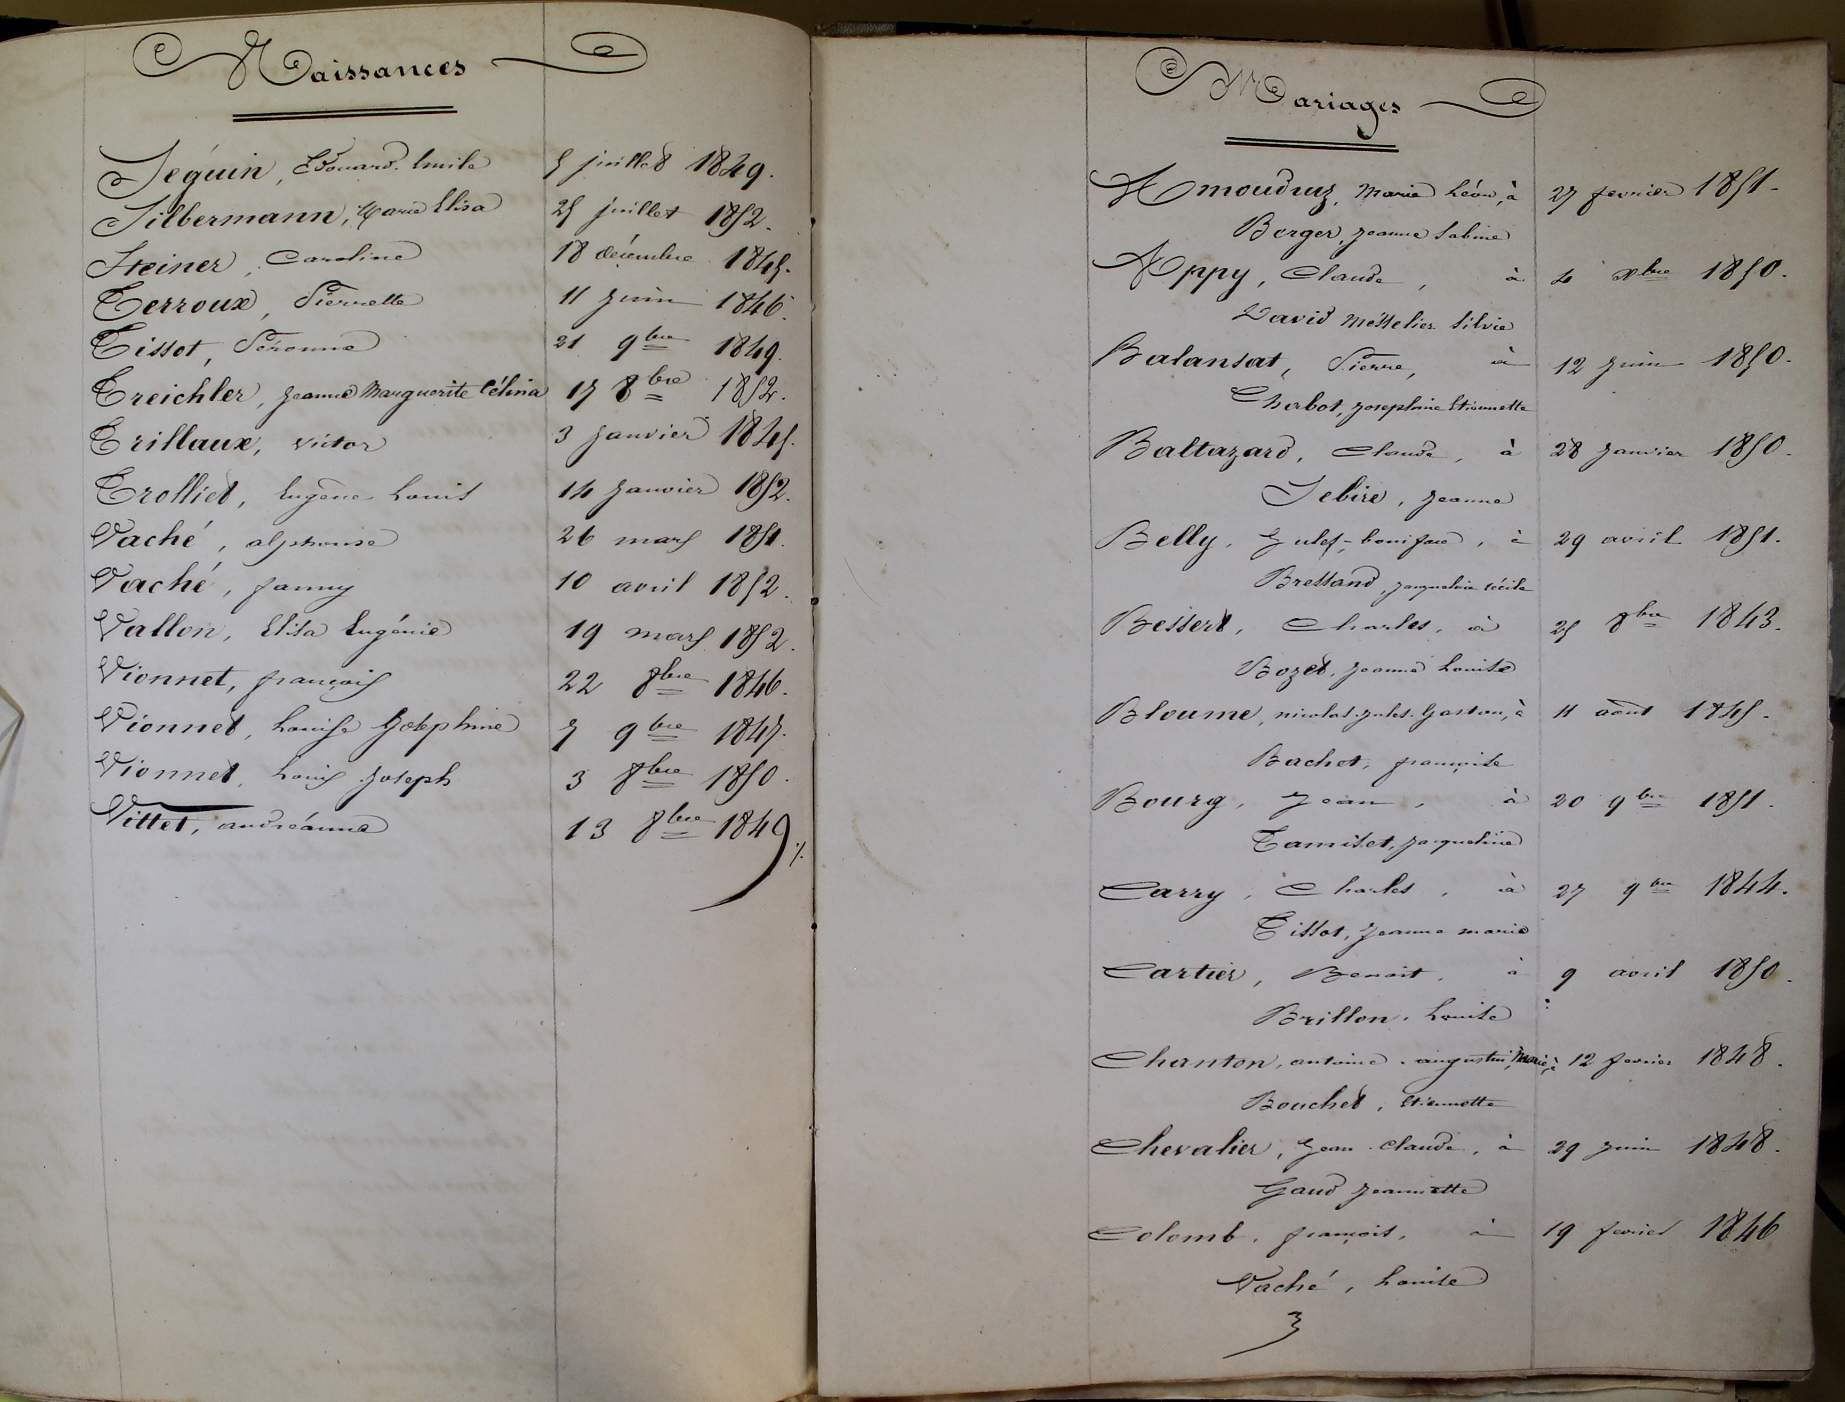 Naissances
Séguin, Edouard Emile 5 juillet 1849.
Silbermann, Marie Elisa 25 juillet 1852.
Steiner, Caroline 18 décembre 1845.
Terroux, Pierrette 11 Juin 1846.
Tissot, Péronne 21 9bre 1849.
Treichler, Jeanne Marguerite Célina 17 8bre 1852.
Trillaux, Victor 3 Janvier 1845.
Trolliet, Eugène Louis 14 Janvier 1852.
Vaché, alphonse 26 mars 1851.
Vaché, fanny 10 avril 1852.
Vallon, Elisa Eugénie 19 mars 1852.
Vionnet, françois 22 8bre 1846.
Vionnet, Louise Joséphine 7 9bre 1847.
Vionnet, Louis Joseph 3 8bre 1850.
Vittet, andréanne 13 8bre 1849 ./.
Mariages
Amoudruz, Marie Léon, à 27 fevrier 1851.
Berger, Jeanne Sabine
Appy, Claude, à 4 xbre 1850.
David Méstelier Silvie
Balansat, Pierre, à 12 Juin 1850.
Cherbot, Josephine Etiennette
Baltazard, Claude, à 28 Janvier 1850.
Sebire, Jeanne
Belly, Jules-boniface, à 29 avril 1851.
Bressand, Jacqueline Cécile
Bessert, Charles, à 25 8bre 1843.
Bozet, Jeanne Louise
Bloume, nicolas-Jules-Gaston, à 11 août 1845.
Bachet, françoise
Bourg, Jean, à 20 9bre 1851.
Tamiset, Jacqueline
Carry, Charles, à 27 9bre 1844.
Tissot, Jeanne marie
Cartier, Benoit, à 9 avril 1850.
Brillon, Louise
Chanton, antoine augustin, Marie, à 12 fevrier 1848.
Bouchet, Etiennette
Chevalier, Jean Claude, à 29 Juin 1848.
Gaud Jeannette
Colomb, françois, à 19 fevrier 1846
Vaché, Louise